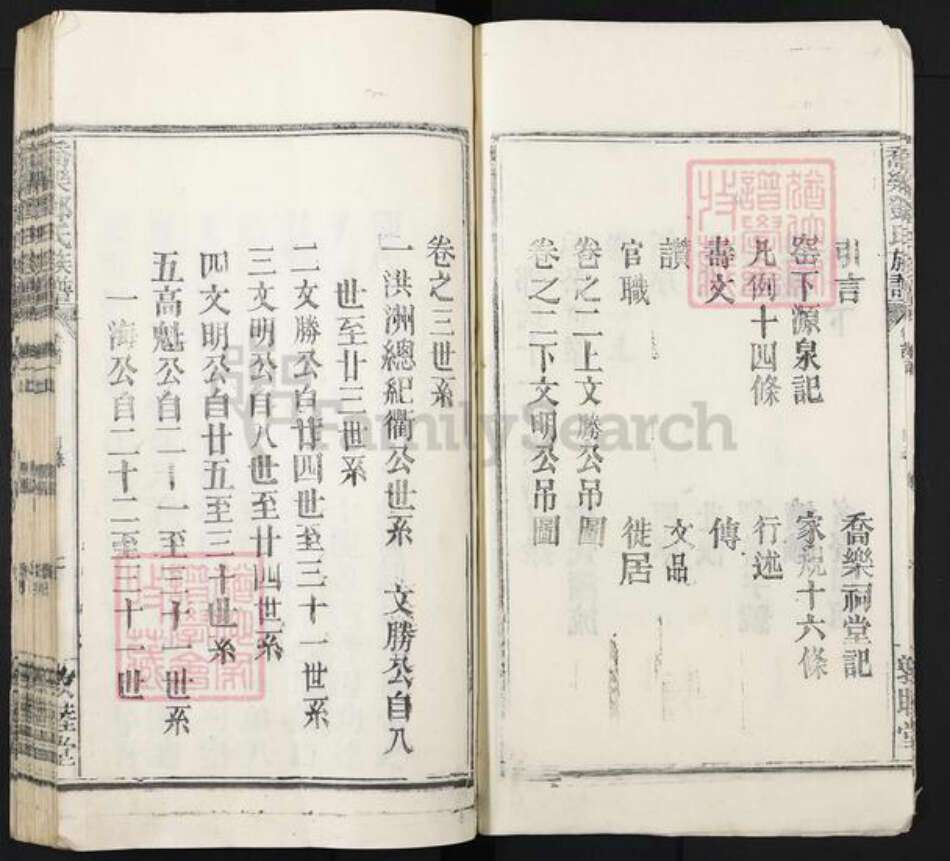 喬樂鄧氏族譜
引言
喬樂祠堂記
窰下源泉記
家規十六條
凡例十四條
行述
壽文
傳
讚
文品
官職
徙居
卷之二上文勝公吊圖
卷之二下文明公吊圖
卷之三世系
一洪洲總紀衢公世系 文勝公自八
世至廿三世系
二文勝公自廿四世至三十一世系
三文明公自八世至廿四世系
四文明公自廿五至三十世系
五高魁公自二十一至三十一世系
一海公自二十二至三十一世
喬樂鄧氏族譜
FamilySearch